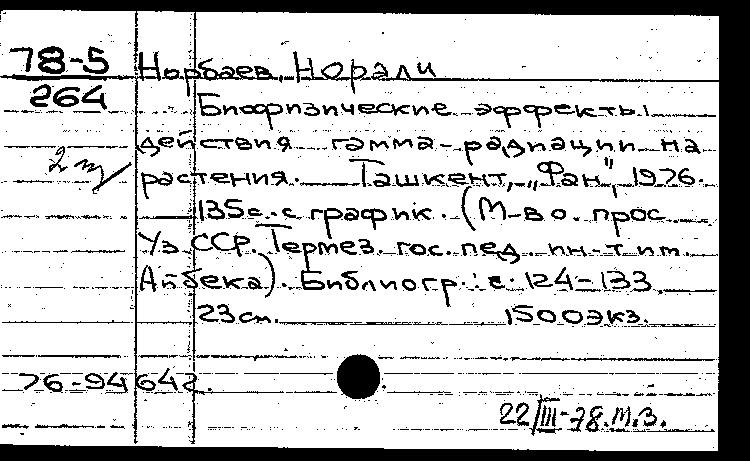 78-5 Норбаев, Норали
264
Биофизические эффекты
действия гамма-радиации на
2 растения. Ташкент, „Фан", 1976.
135 с. с график. (М-во. прос.
Уз ССР. Термез. гос. пед. ин-т им.
Айбека). Библиогр.: с. 124-133
23 см. 1500 экз.
76-94642.
22/III-78. М.З.